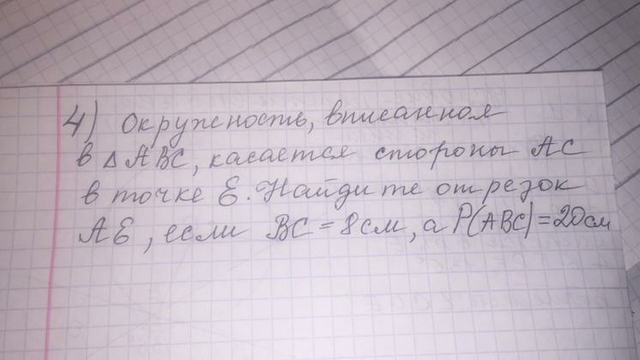 4) Окружность, вписанная
в △ АВС, касается стороны АС
в точке Е. Найдите отрезок
АЕ, если ВС = 8 см, а Р(АВС) = 20 см